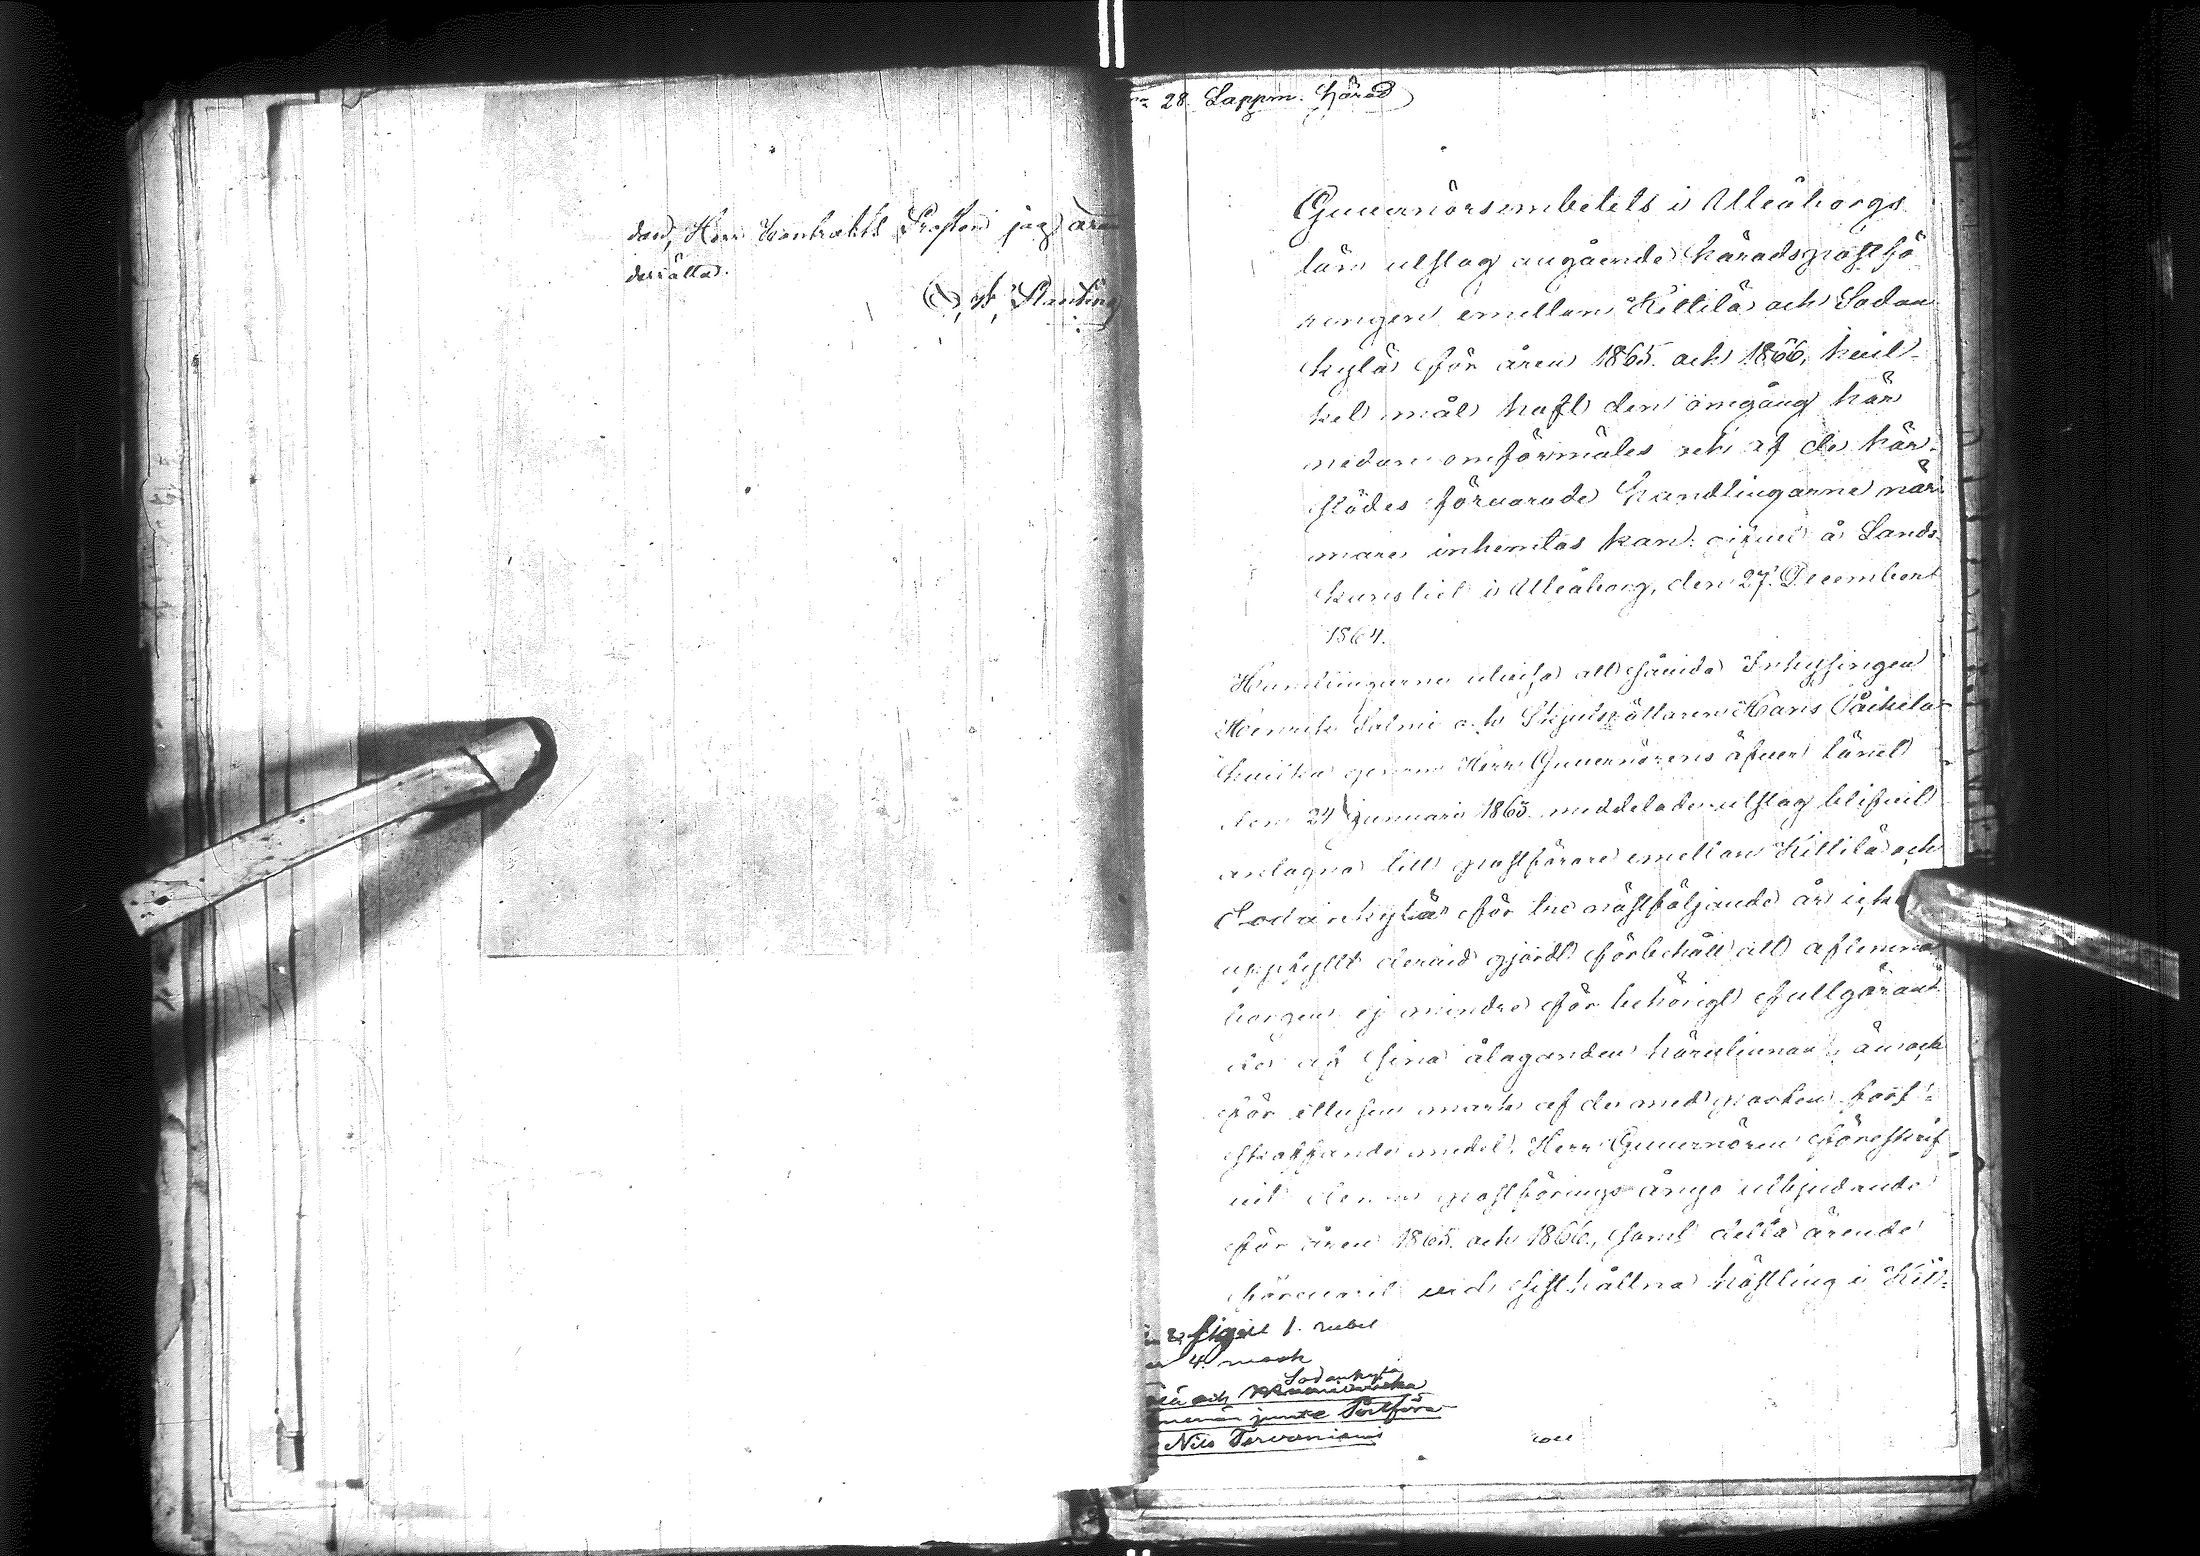 dan, Herr Contrakts Prosten jag ären
derrätta.
N:o 28 Lappm. härad
Guvernörsembetets i Uleåborgs
län utslag angående häradspostfö
ringen emellan Kittilä och Sodan
kylä för åren 1865 och 1866, hvil-
ket mål haft den omgång här
nedan omförmäles och af de här-
städes förvarade handlingarne när-
mare inhemtas kan; gifvet å Lands-
kansliet i Uleåborg, den 27 December
1864.
Handlingarne utvisa att sedan Inhysingen
Henrik Salmi och Skjutsrättaren Hans
hvilka genom Herr Guvernörens öfver länet
den 24 januari 1863 meddelade utslag blifvit
antagne till postförare emellan Kittilä och
Sodankylä för tre nästföljande år icke
uppfyllt dervid gjordt förbehåll att aflemna
borgen ej mindre för behörigt fullgöran
de af sina åligganden härutinnan, än ock
för
af de med posten fort-
skaffande medel, Herr Guvernören föreskrif
vit denna postförings ånyo utbjudande
för åren 1865 och 1866, samt detta ärende
förevarit vid sisthållna höstting i Kit-
sigill 1. rubel
4. mark
Sodankylä
och
Postföra
Nils